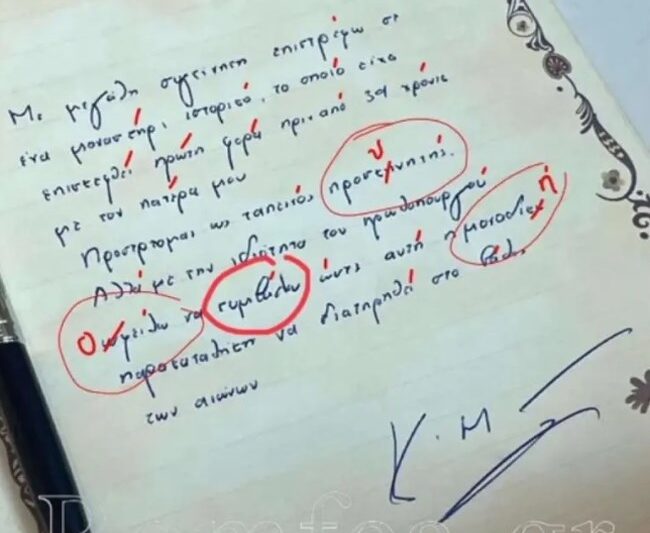 Με μεγαλη συγκινηση επιστρέφω σε
ένα μοναστήρι ιστορικό, το οποίο είχα
επισκεφθεί πρώτη φορά πριν από χρόνια
με τον πατέρα μου
υ
Προσερχομαι ως ταπεινός προσκηνητής.
ή
Αλλά με την ιδιότητα του πρωθυπουργού
Ο ωφείλω να συμβάλω ώστε αυτή η
παρακαταθηκη να διατηρηθεί στο
των αιωνων
Κ. Μ